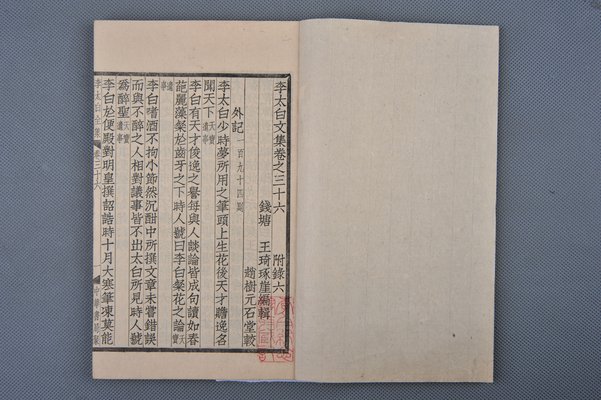 李太白文集卷之三十六 附錄六
錢塘 王琦琢崖編輯
趙樹元石堂較
外記一百九十四則
李太白少時夢所用之筆頭上生花後天才贍逸名
聞天下天寶遺事
李白有天才俊逸之譽每與人談論皆成句讀如春
葩麗藻粲於齒牙之下時人號曰李白粲花之論天寶
遺事
李白嗜酒不拘小節然沉酣中所撰文章未嘗錯誤
而與不醉之人相對議事皆不出太白所見時人號
為醉聖天寶遺事
李白於便殿對明皇撰詔誥時十月大寒筆凍莫能
李太白全集 卷三十六